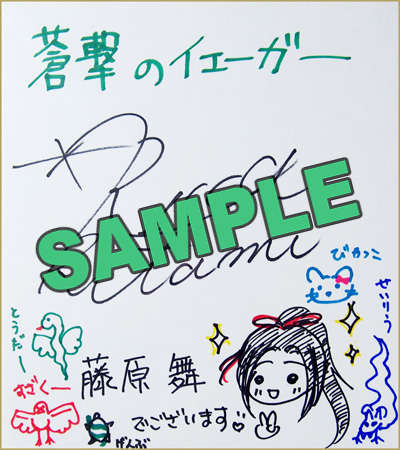 蒼撃のイェーガー
SAMPLE
びゃっこ
せいりう
とうだー
藤原 舞
すざくー
でございます♡
げんぶ